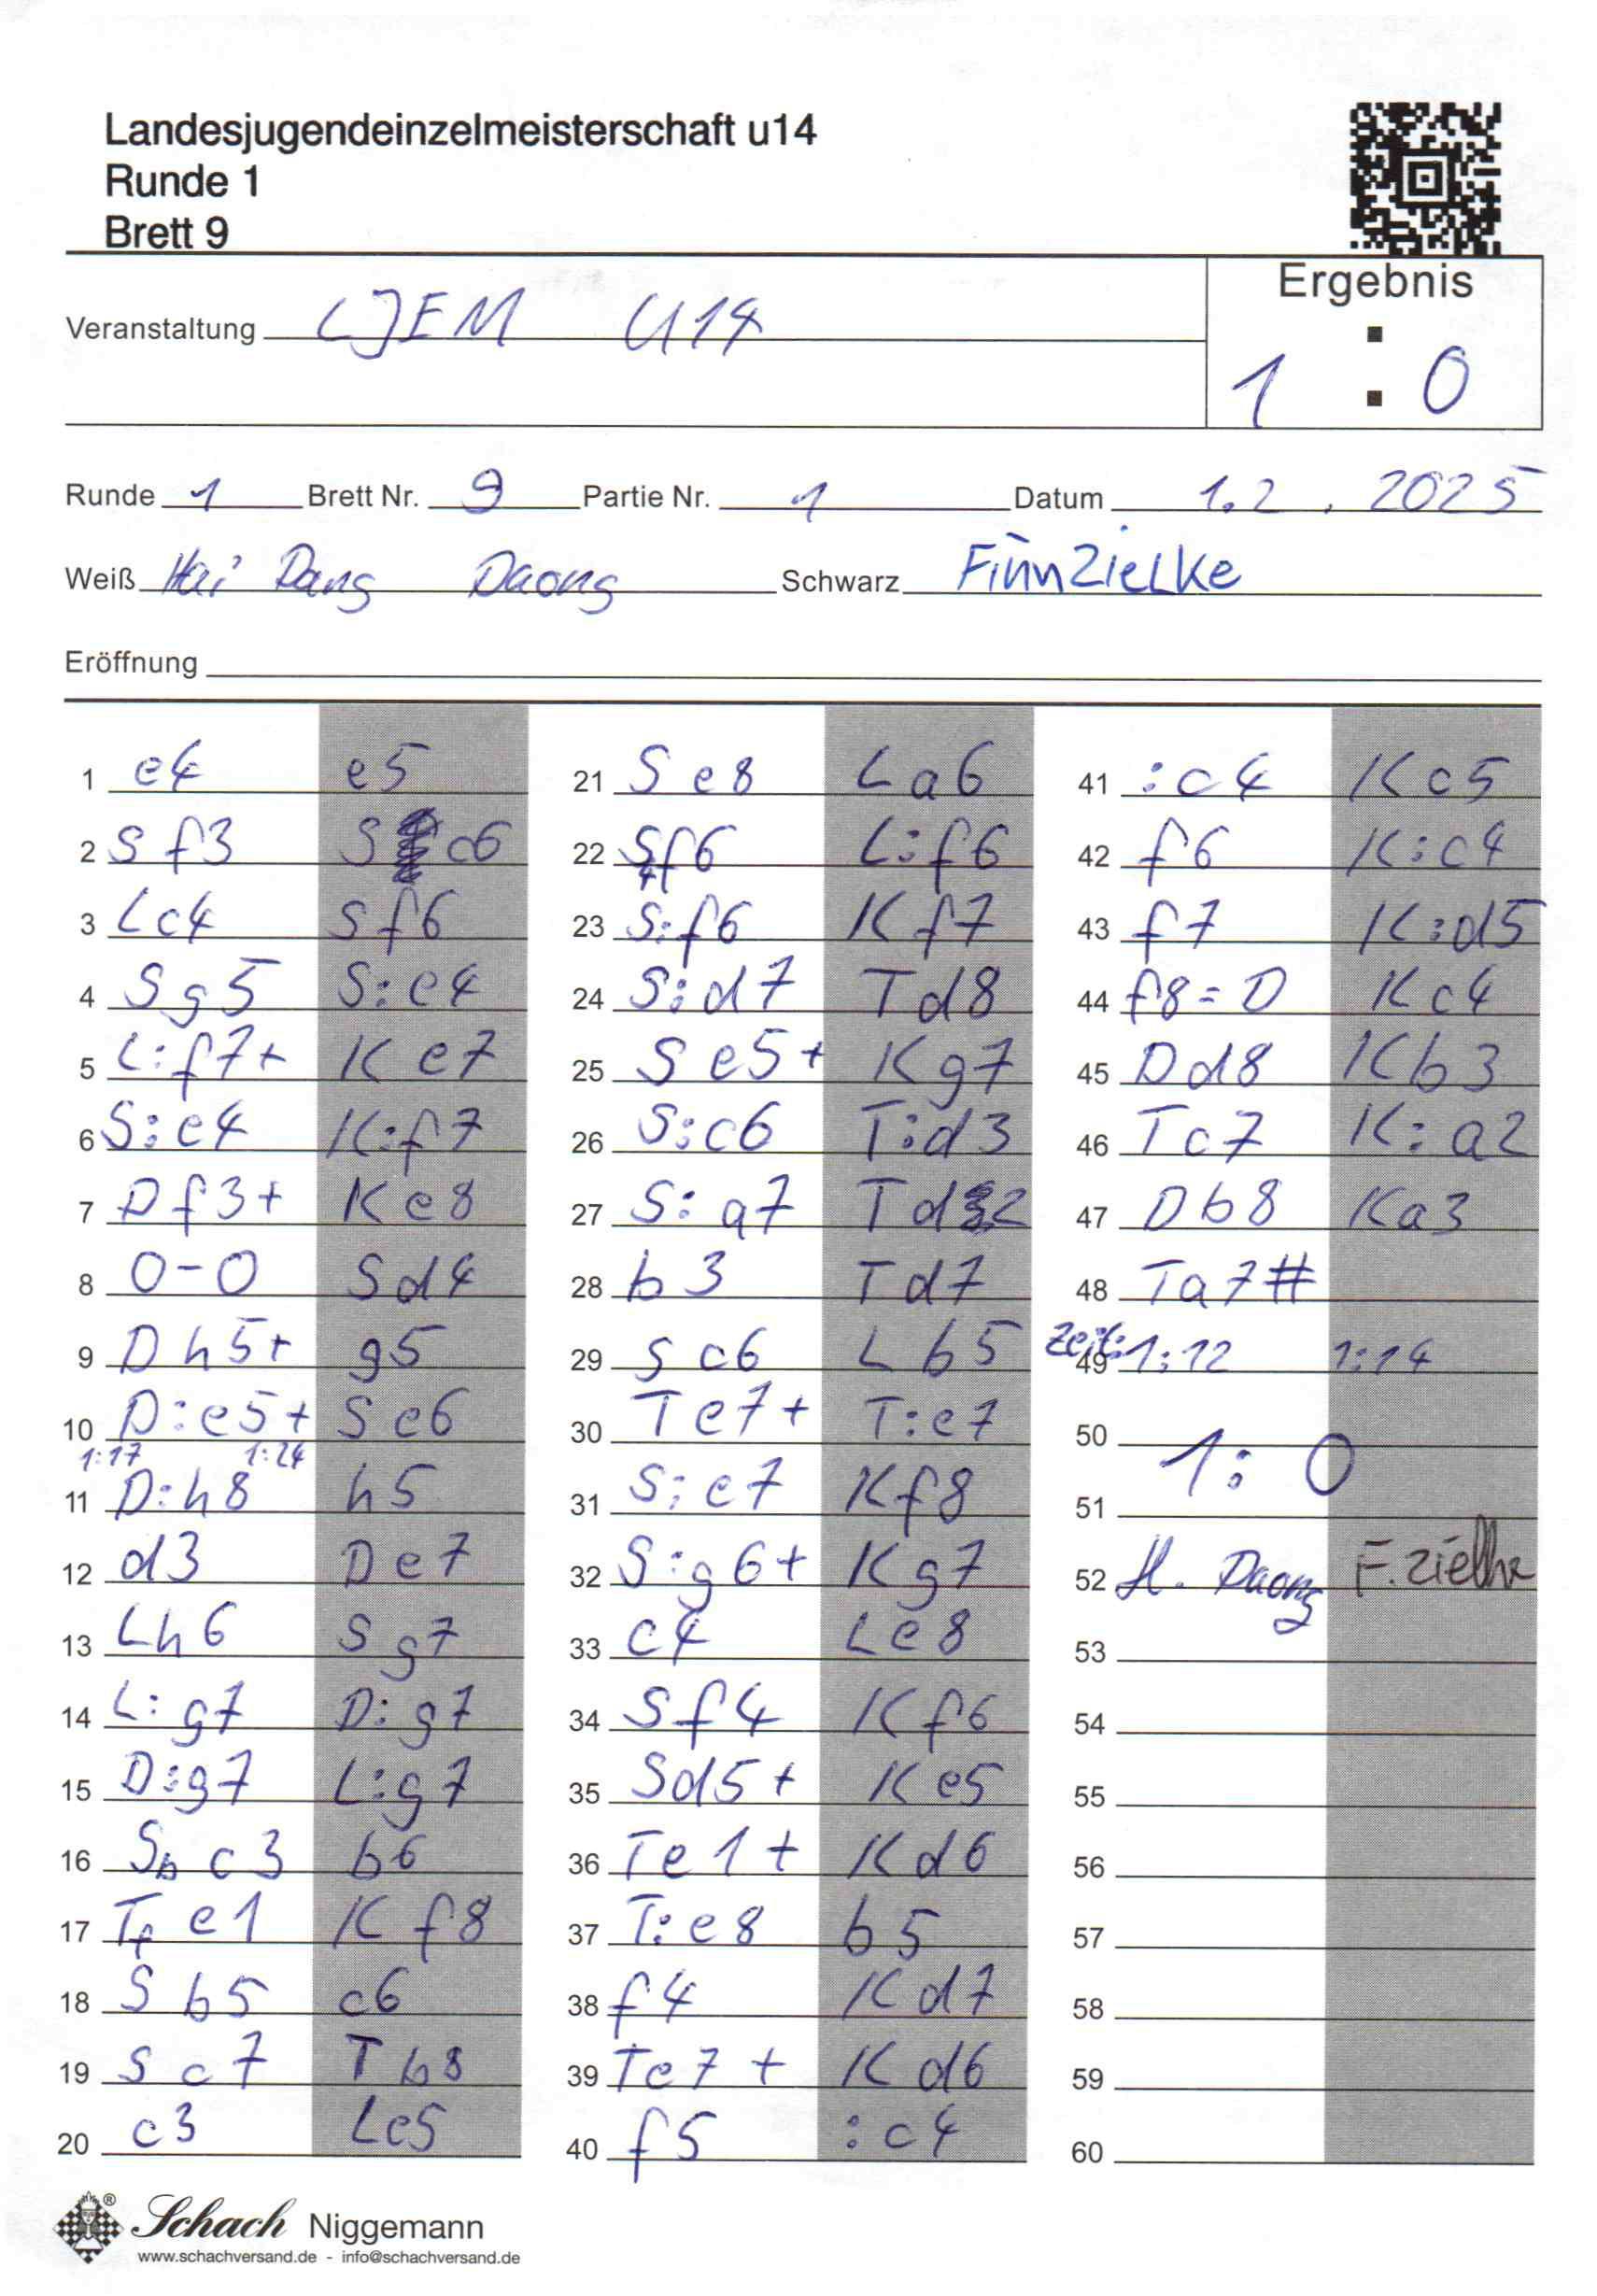 Landesjugendeinzelmeisterschaft u14
Runde 1
Brett 9
Ergebnis
1 : 0
Veranstaltung LJEM U14
Runde 1 Brett Nr. 9 Partie Nr. 1 Datum 1.2.2025
Weiß Hai Dang Daong Schwarz Finn Zielke
Eröffnung
1 e4 e5
2 Sf3 Sc6
3 Lc4 Sf6
4 Sg5 S:e4
5 L:f7+ Ke7
6 S:e4 K:f7
7 Df3+ Ke8
8 0-0 Sd4
9 Dh5+ g5
10 D:e5+ Se6
1:17 1:24
11 D:h8 h5
12 d3 De7
13 Lh6 Sg7
14 L:g7 D:g7
15 D:g7 L:g7
16 Sbc3 b6
17 Tfe1 Kf8
18 Sb5 c6
19 Sc7 Tb8
20 c3 Le5
21 Se8 La6
22 S4f6 L:f6
23 S:f6 Kf7
24 S:d7 Td8
25 Se5+ Kg7
26 S:c6 T:d3
27 S:a7 Td2
28 b3 Td7
29 Sc6 Lb5
30 Te7+ T:e7
31 S:e7 Kf8
32 S:g6+ Kg7
33 c4 Le8
34 Sf4 Kf6
35 Sd5+ Ke5
36 Te1+ Kd6
37 T:e8 b5
38 f4 Kd7
39 Te7+ Kd6
40 f5 :c4
41 :c4 Kc5
42 f6 K:c4
43 f7 K:d5
44 f8=D Kc4
45 Dd8 Kb3
46 Tc7 K:a2
47 Db8 Ka3
48 Ta7#
49 Zeit: 1:12 1:14
50
1:0
51
52 H. Daong F. Zielke
53
54
55
56
57
58
59
60
Schach Niggemann
www.schachversand.de - info@schachversand.de